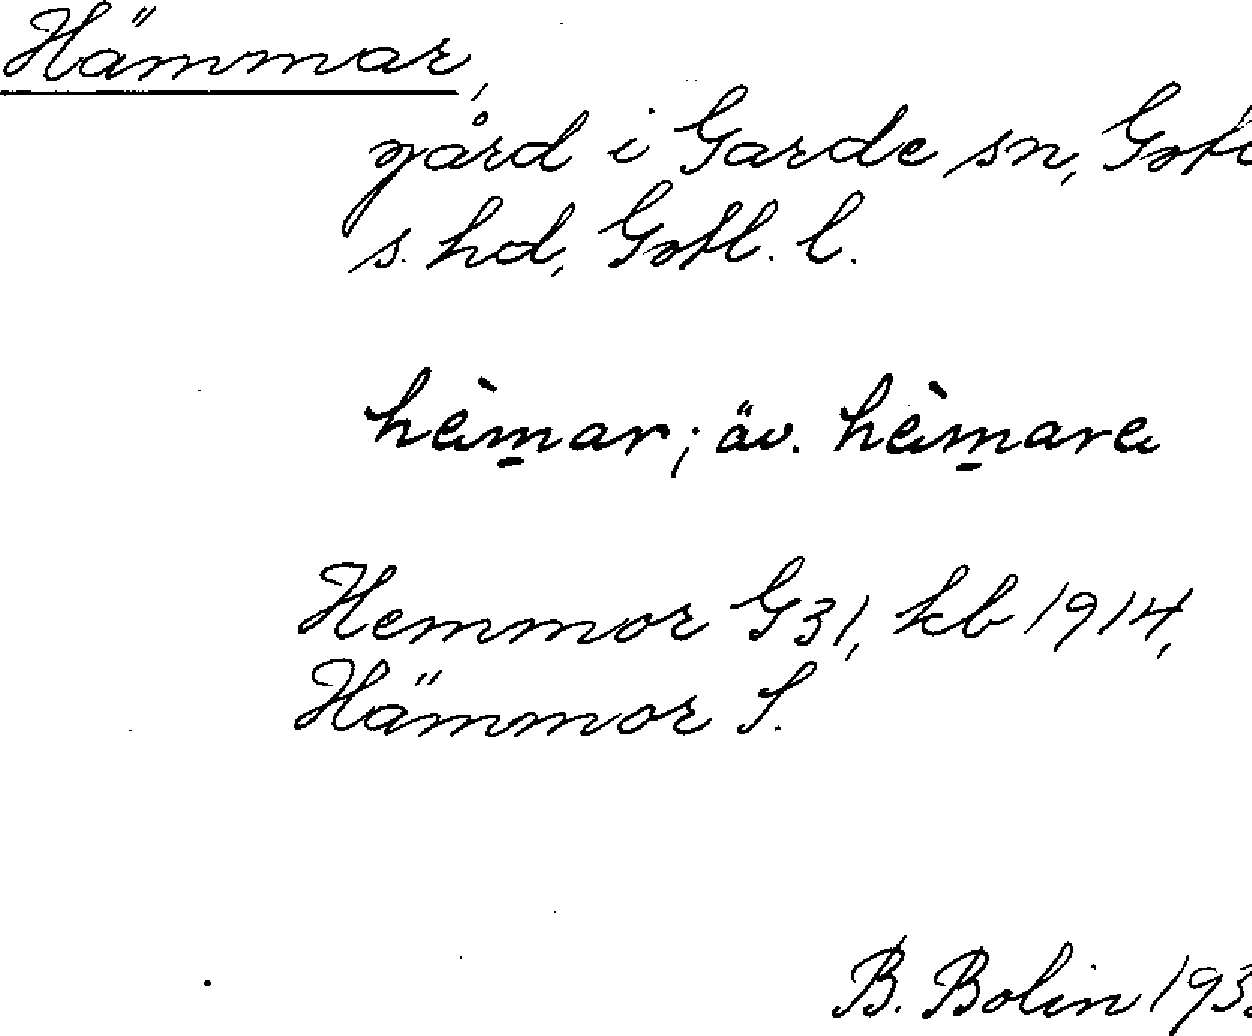 Hämmar,
gård i Garde sn, Gotl
s. hd, Gotl. l.
hämar; äv. hämara
Hemmor G31, kb 1914,
Hämmor S.
B. Bolin 193